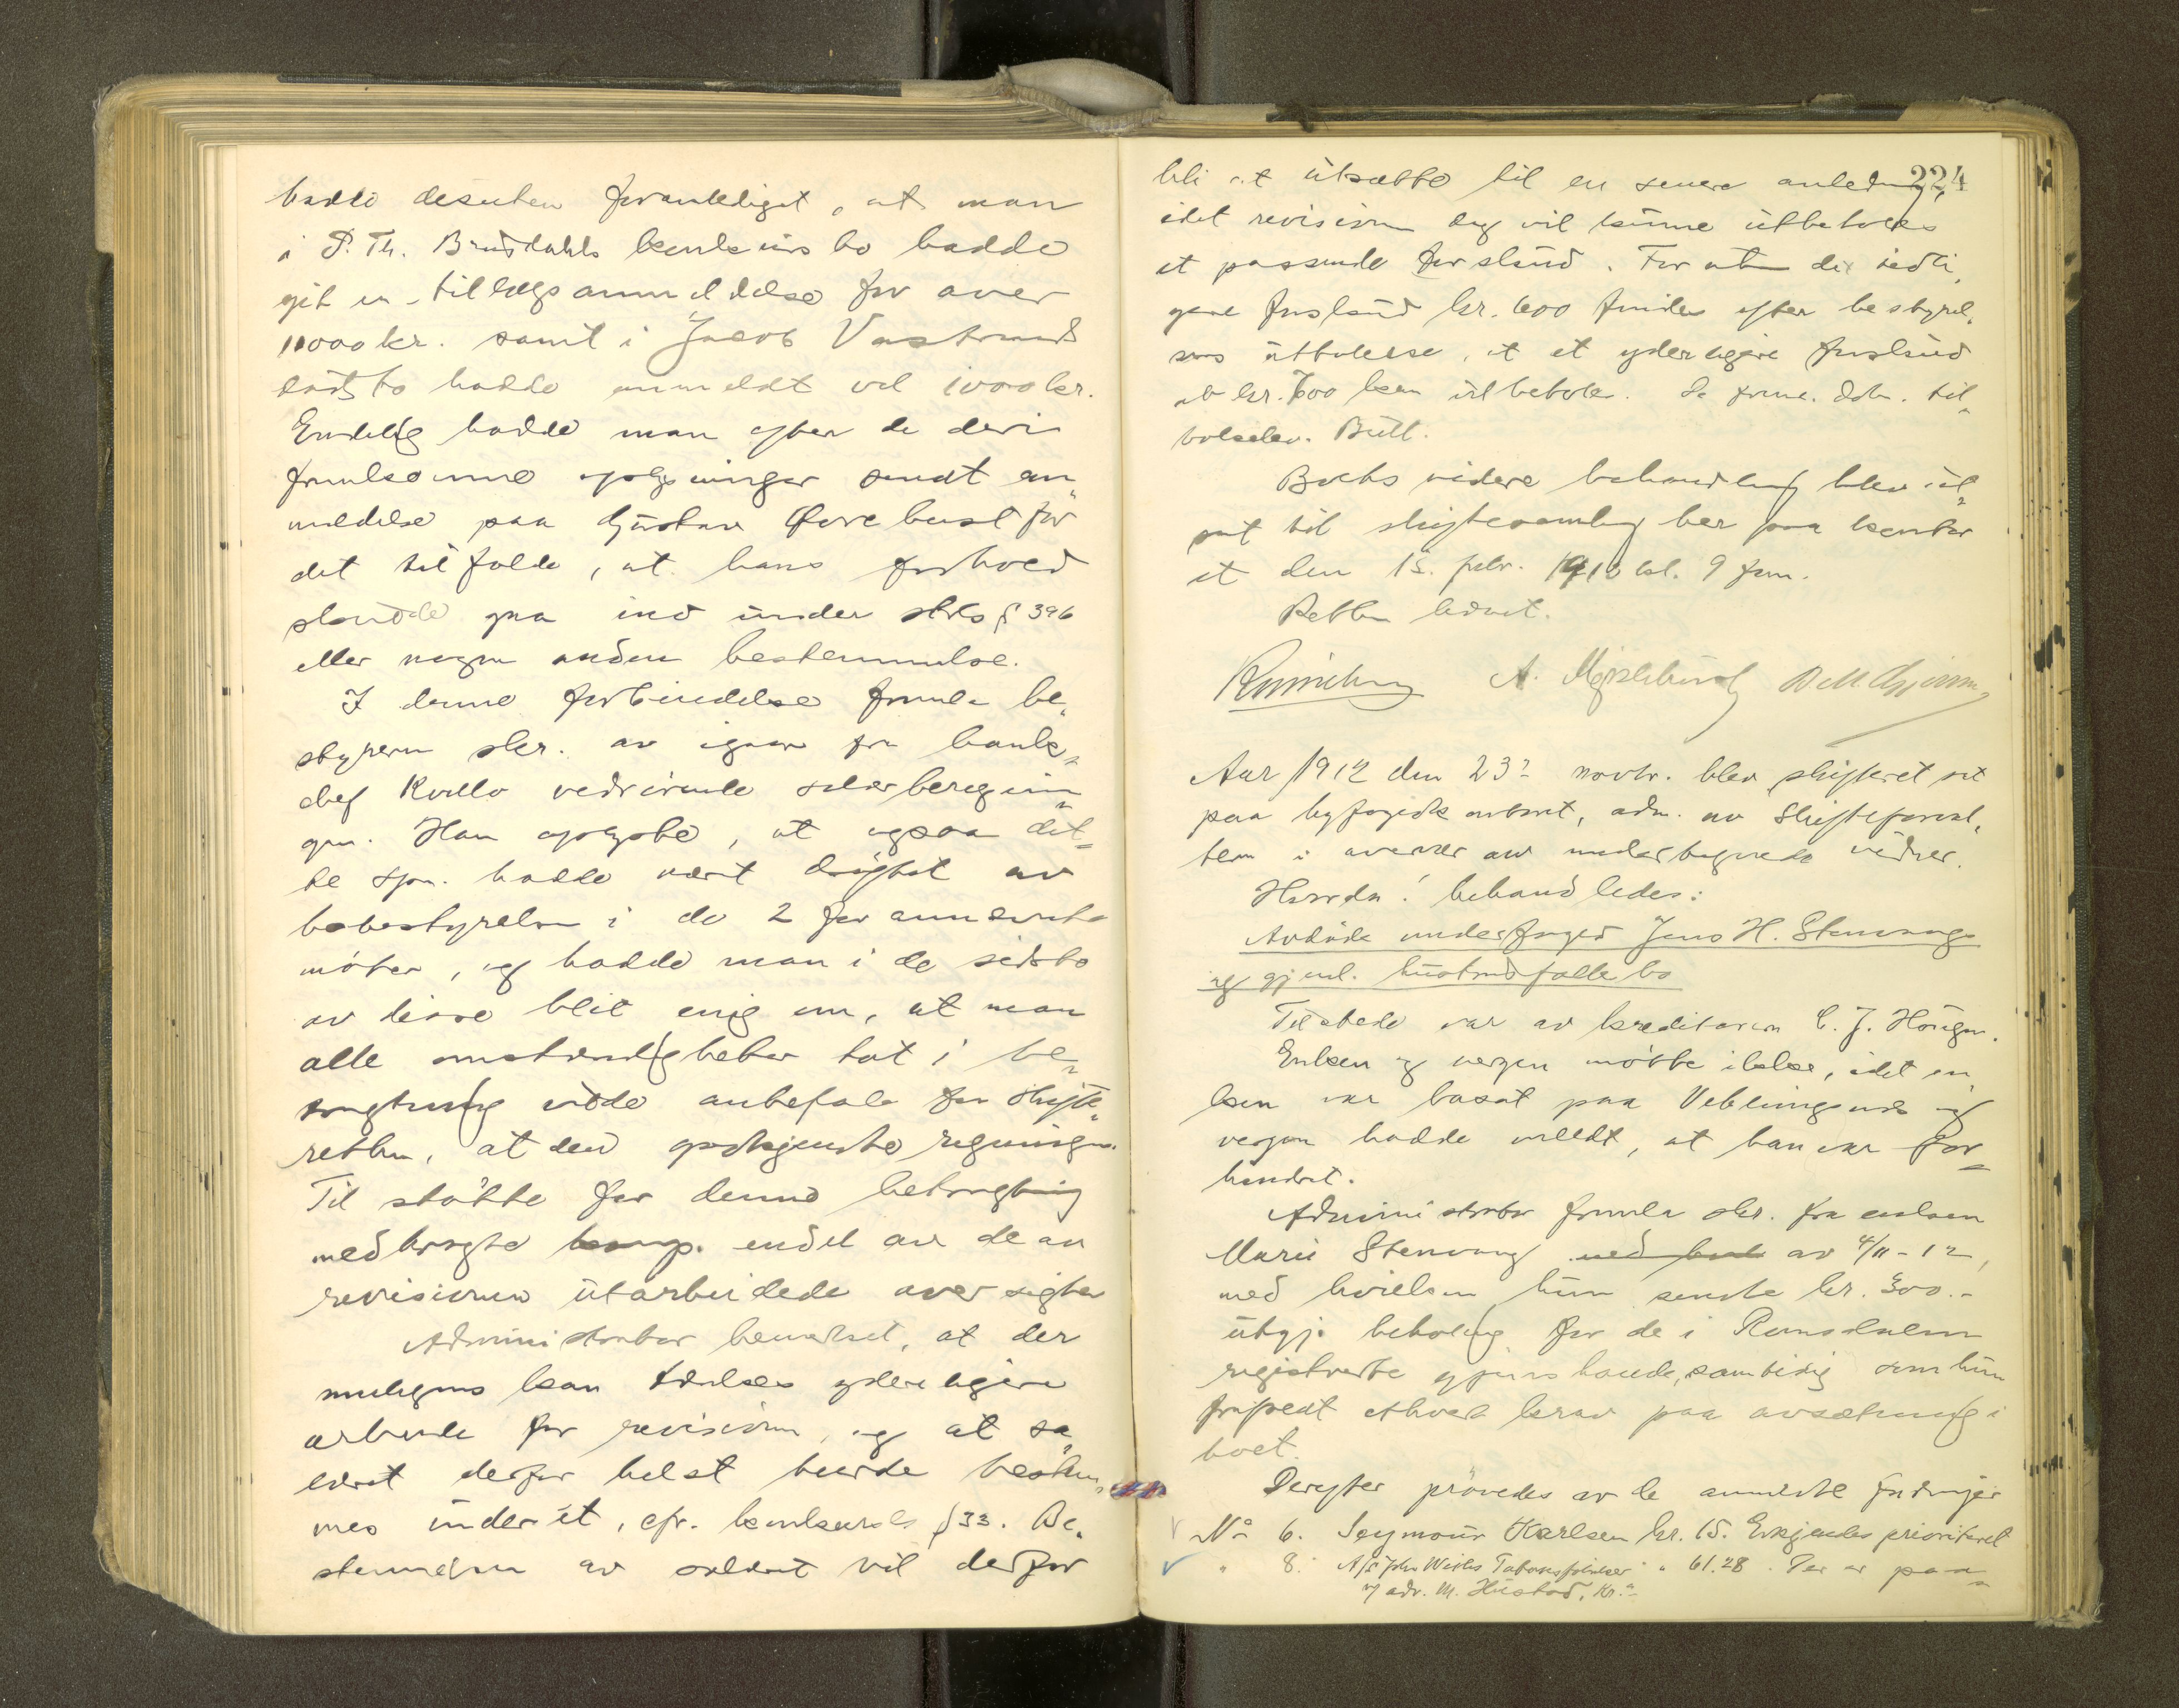 hadde desuten foranlediget, at man
i P. Th. Brusdahls konkursbo hadde
git en tillægsanmeldelse for over
11000 kr. samt i Jacob Vastrands
dødsbo hadde anmeldt vel 1000 kr.
Endelig hadde man efter de deri
fremkomne oplysninger sendt an„
meldelse paa Gustav Ørebust for
det tilfælde, at hans forhold
skulde gaa ind under strl § 396
eller nogen anden bestemmelse.
I denne forbindelse fremla be„
styreren skr. av igaar fra bank„
chef Kvello vedrørende salærberegnin„
gen. Han oplyste, at ogsaa det„
te spm. hadde vært drøftet av
bobestyrelsen i de 2 før avnævnte
møter, og hadde man i de sidste
av disse blit enig om, at man
alle omstændigheter tat i be„
tragtning vilde anbefale for skifte„
retten, at den godkjendte regningen.
Til støtte for denne betragtning
medbragte komp. endel av de av
revisionen utarbeidede oversigter
Administrator bemerket, at der
muligens kan tænkes yderligere
arbeide for revisionen, og at sa„
læret derfor helst burde bestem„
mes under ét, cfr. konkursl. § 33. Be„
stemmelsen av salæret vil derfor
224
bli at utsætte til en senere anledning,
idet revisionen dog vil kunne utbetales
et passende forskud. Foruten det tidli„
gere forskud kr. 600 findes efter bestyrel„
sens uttalelse, at et yderligere forskud
av kr. 600 kan utbetales. De frem. dok. til„
Boets videre behandling blev ut„
sat til skiftesamling her paa kontor
et den 15. febr. 1913 kl. 9 fm.
Retten hævet.
A. Myklebust
Aar 1912 den 23? novbr. blev skifteret sat
paa byfogedkontoret, adm. av skifteforval„
teren i overvær av undertegnede vidner.
Hvorda! behandledes:
Avdøde underfoged Jens H. Stenvaags
og gjenl. hustrus fælles bo
Tilstede var av kreditorene C. J. Hougen.
Enken og vergen møtte ikke, idet en„
ken var bosat paa Veblungsnes og
vergen hadde meldt, at han var for„
hindret.
Administrator fremla skr. fra enken
Marie Stenvaag med bud av 4/11-12,
med hvilken hun sendte kr. 300.-
utgj. betaling for de i Romsdalen
registrerte gjenstande, samtidig som hun
frafaldt ethvert krav paa avsætning i
boet.
Derefter prøvedes av de anmeldte fordringer
No 6. Seymour Karlsen kr. 15. Erkjendes prioriteret
„ 8. A/S Joh. Tobaksfabrikker „ 61.28. Der er paa„
v/ adv. M. Hustad, Kr.a